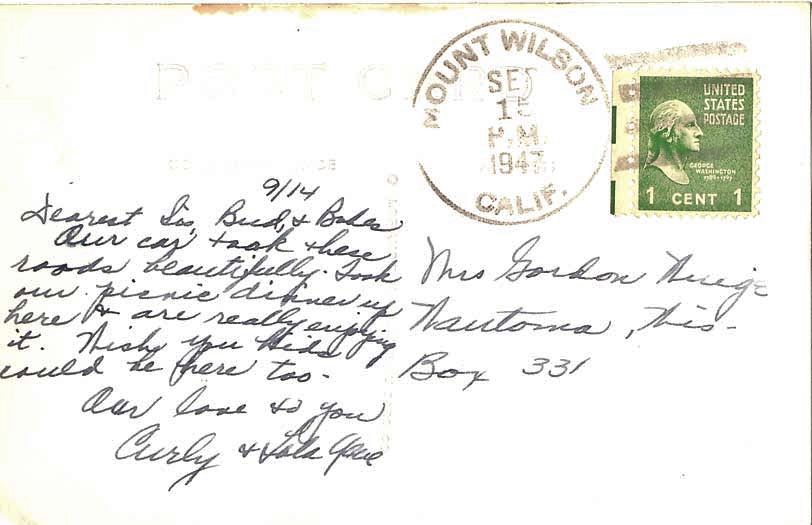 POST CARD
MOUNT WILSON
SEP
15
P.M.
1947
CALIF.
UNITED
STATES
POSTAGE
GEORGE
WASHINGTON
1789-1797
1 CENT 1
9/14
Dearest Sis, Bud, &
Our car took these
roads beautifully. Took
our picnic dinner up
here & are really enjoying
it. Wish you kids
could be here too-
Our love to you
Curly & Lola
Mrs Gordon
Wautoma, Wis-
Box 331